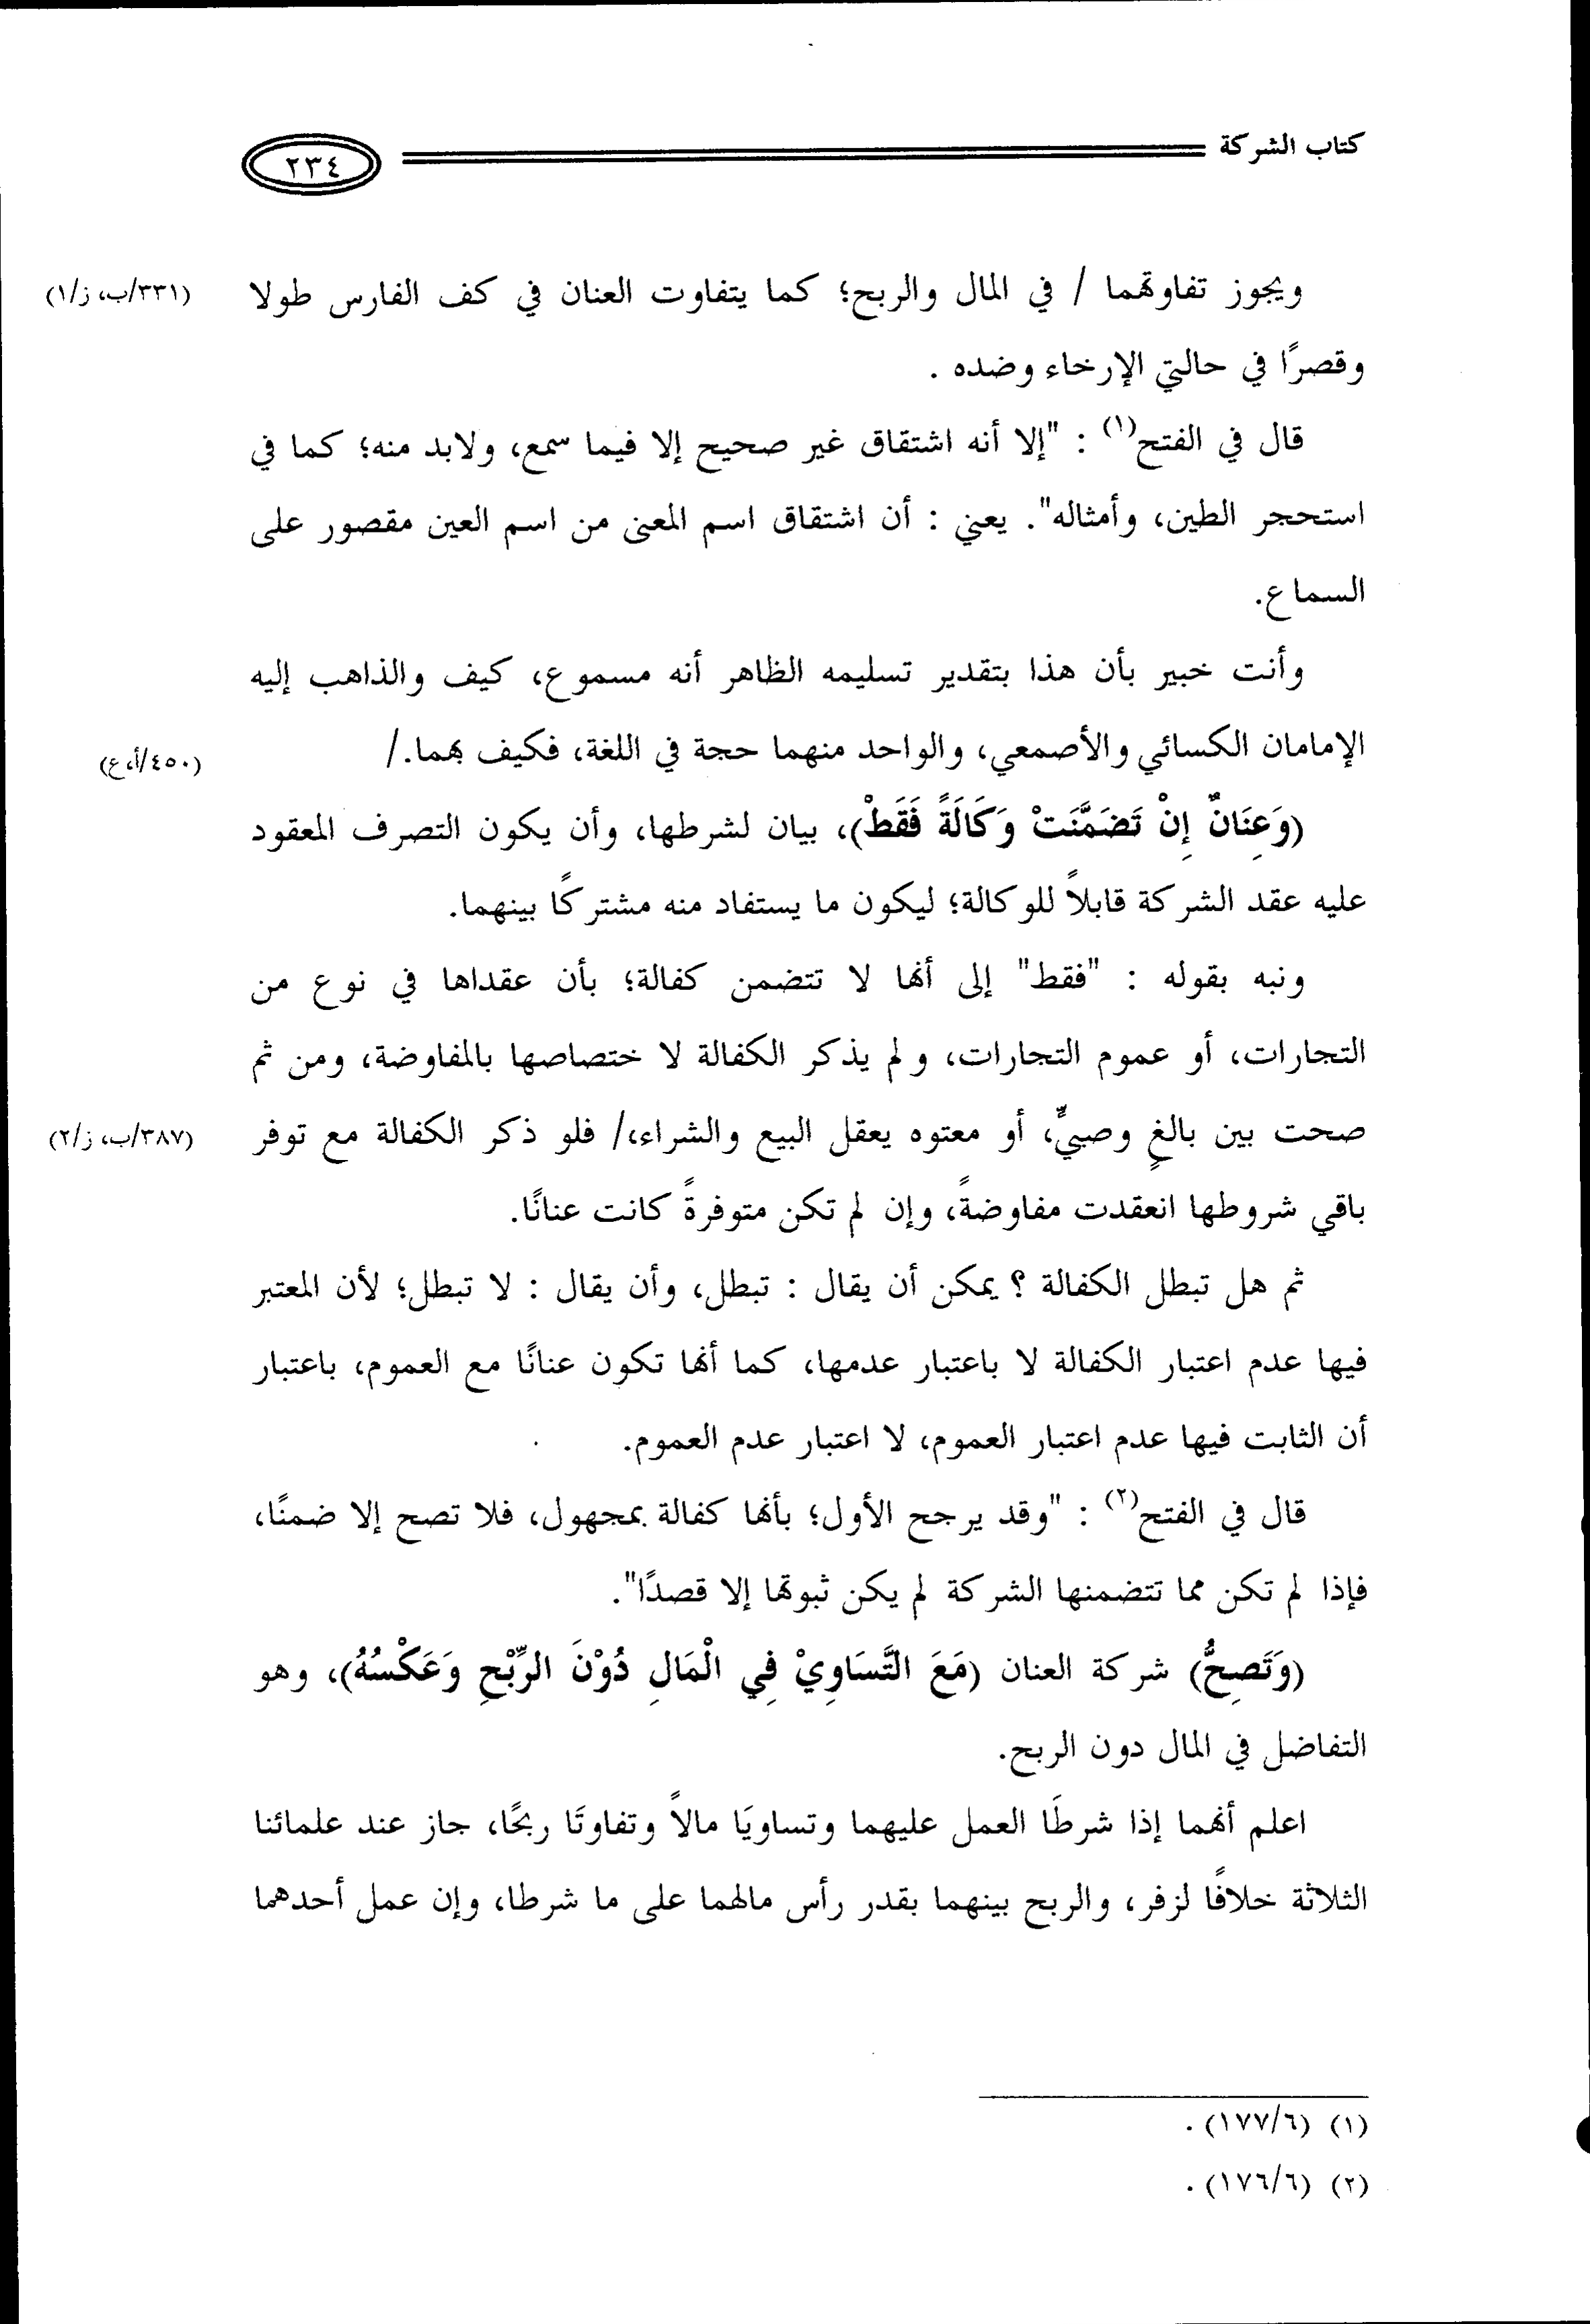 كتاب الشركة
٢٣٤
ويجوز تفاوتهما / في المال والربح؛ كما يتفاوت العنان في كف الفارس طولا
(٣٣١/ب، ز/١)
وقصرًا في حالتي الإرخاء وضده .
قال في الفتح(١) : "إلا أنه اشتقاق غير صحيح إلا فيما سمع، ولابد منه؛ كما في
استحجر الطين، وأمثاله". يعني : أن اشتقاق اسم المعنى من اسم العين مقصور على
السماع.
وأنت خبير بأن هذا بتقدير تسليمه الظاهر أنه مسموع، كيف والذاهب إليه
الإمامان الكسائي والأصمعي، والواحد منهما حجة في اللغة، فكيف بهما./
(٤٥٠/أ،ع)
(وَعِنَانٌ إِنْ تَضَمَّنَتْ وَكَالَةً فَقَطْ)، بيان لشرطها، وأن يكون التصرف المعقود
عليه عقد الشركة قابلاً للوكالة؛ ليكون ما يستفاد منه مشتركًا بينهما.
ونبه بقوله : "فقط" إلى أنها لا تتضمن كفالة؛ بأن عقداها في نوع من
التجارات، أو عموم التجارات، ولم يذكر الكفالة لا ختصاصها بالمفاوضة، ومن ثم
صحت بين بالغٍ وصبيٍّ، أو معتوه يعقل البيع والشراء،/ فلو ذكر الكفالة مع توفر
(٣٨٧/ب، ز/٢)
باقي شروطها انعقدت مفاوضةً، وإن لم تكن متوفرةً كانت عنانًا.
ثم هل تبطل الكفالة ؟ يمكن أن يقال : تبطل، وأن يقال : لا تبطل؛ لأن المعتبر
فيها عدم اعتبار الكفالة لا باعتبار عدمها، كما أنها تكون عنانًا مع العموم، باعتبار
أن الثابت فيها عدم اعتبار العموم، لا اعتبار عدم العموم.
قال في الفتح(٢) : "وقد يرجح الأول؛ بأنها كفالة بمجهول، فلا تصح إلا ضمنًا،
فإذا لم تكن مما تتضمنها الشركة لم يكن ثبوتها إلا قصدًا".
(وَتَصِحُّ) شركة العنان (مَعَ التَّسَاوِيْ فِي الْمَالِ دُوْنَ الرِّبْحِ وَعَكْسُهُ)، وهو
التفاضل في المال دون الربح.
اعلم أنهما إذا شرطَا العمل عليهما وتساويَا مالاً وتفاوتَا ربحًا، جاز عند علمائنا
الثلاثة خلافًا لزفر، والربح بينهما بقدر رأس مالهما على ما شرطا، وإن عمل أحدهما
(١) (١٧٧/٦) .
(٢) (١٧٦/٦) .